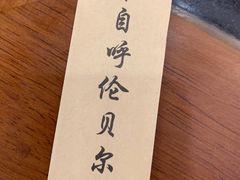 自呼伦贝尔